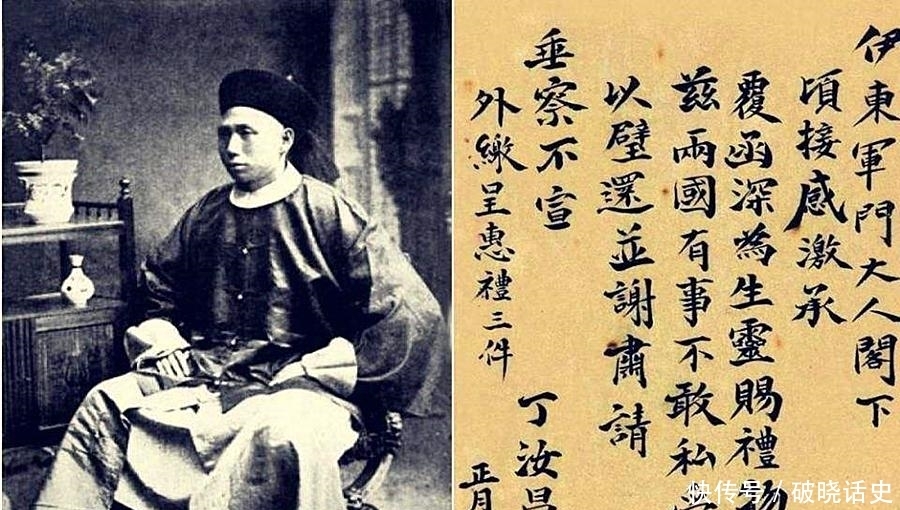 伊東軍門大人閣下
頃接感激承
覆函深為生靈賜禮物
茲兩國有事不敢私
以璧還並謝肅請
垂察不宣
外繳呈惠禮三件
丁汝昌
正月
快传号/破晓话史